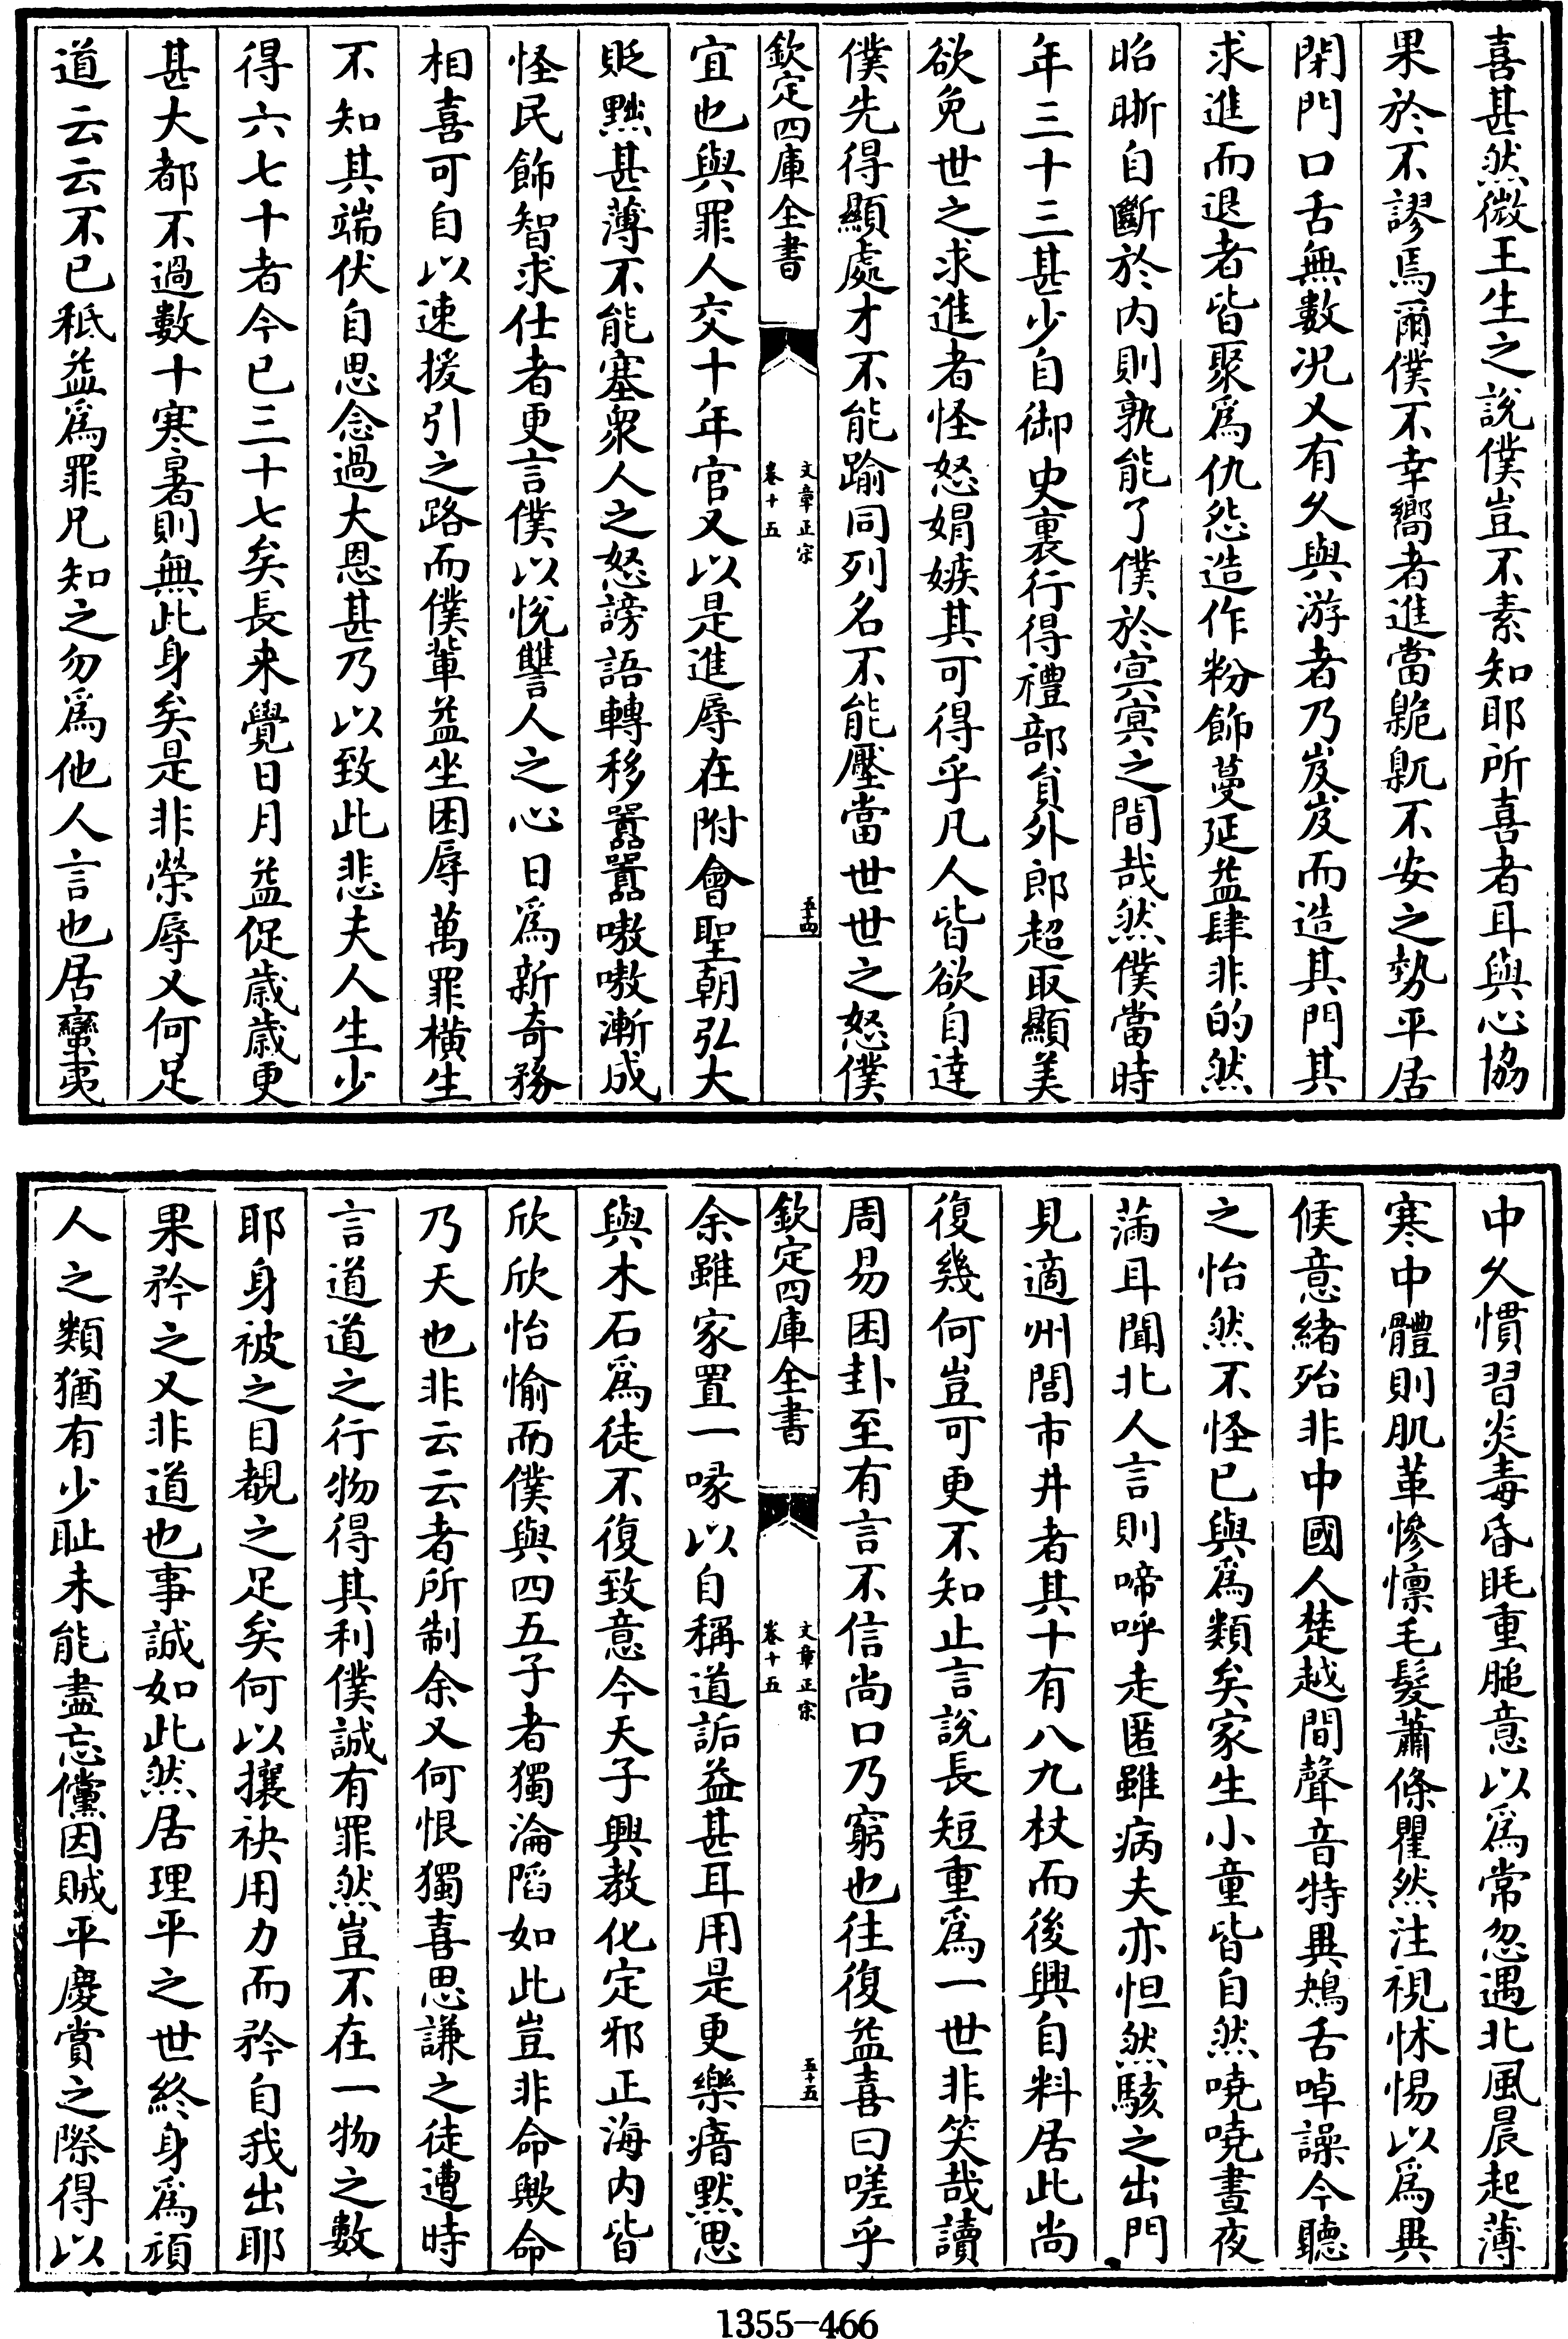 喜甚然微王生之說僕豈不素知耶所喜者耳與心協
果於不謬焉爾僕不幸嚮者進當臲卼不安之勢平居
閉門口舌無數况又有久與游者乃岌岌而造其門其
求進而退者皆聚爲仇怨造作粉飾蔓延益肆非的然
昭晰自斷於内則孰能了僕於冥冥之間哉然僕當時
年三十三甚少自御史裏行得禮部貟外郎超取顯美
欲免世之求進者怪怒娟嫉其可得乎凡人皆欲自達
僕先得顯處才不能踰同列名不能壓當世世之怒僕
欽定四庫全書
文章正宗
卷十五
五十四
宜也與罪人交十年官又以是進辱在附會聖朝弘大
貶黜甚薄不能塞衆人之怒謗語轉移囂囂嗷嗷漸成
怪民飾智求仕者更言僕以悅讐人之心日為新奇務
相喜可自以速援引之路而僕輩益坐困辱萬罪橫生
不知其端伏自思念過大恩甚乃以致此悲夫人生少
得六七十者今已三十七矣長来覺日月益促歲歲更
甚大都不過數十寒暑則無此身矣是非榮辱又何足
道云云不已秪益爲罪凡知之勿爲他人言也居蠻夷
中久慣習炎毒昏眊重膇意以爲常忽遇北風晨起薄
寒中體則肌革慘懍毛髮蕭條瞿然注視怵惕以爲異
候意緒殆非中國人楚越間聲音特異鴂舌啅譟今聽
之怡然不怪已與爲類矣家生小童皆自然嘵嘵晝夜
滿耳聞北人言則啼呼走匿雖病夫亦怛然駭之出門
見適州閭市井者其十有八九杖而後興自料居此尚
復幾何豈可更不知止言說長短重爲一世非笑哉讀
周易困卦至有言不信尚口乃窮也往復益喜曰嗟乎
欽定四庫全書
文章正宗
卷十五
五十五
余雖家置一喙以自稱道詬益甚耳用是更樂瘖默思
與木石爲徒不復致意今天子興教化定邪正海内皆
欣欣怡愉而僕與四五子者獨淪䧟如此豈非命歟命
乃天也非云云者所制余又何恨獨喜思謙之徒遭時
言道道之行物得其利僕誠有罪然豈不在一物之數
耶身被之目覩之足矣何以攘袂用力而矜自我出耶
果矜之又非道也事誠如此然居理平之世終身爲頑
人之類猶有少耻未能盡忘儻因賊平慶賞之際得以
1355-466